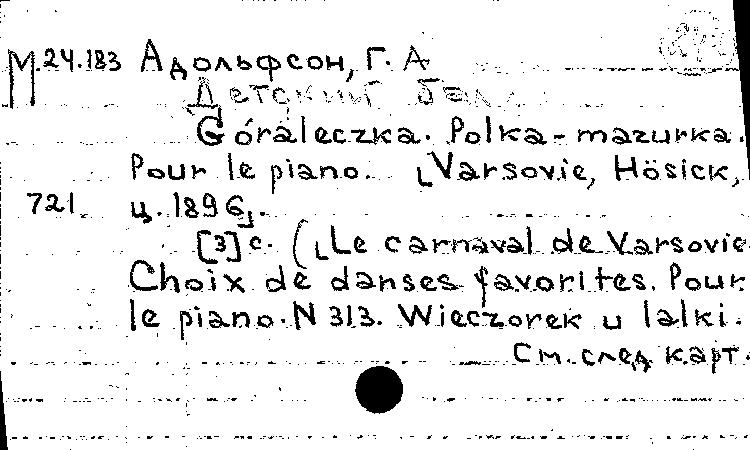 М.24.183 Адольфсон, Г. А
Детский бал
Góraleczka. Polka-mazurka.
Pour le piano. [Varsovie, Hösick,
721. ц. 1896].
[3] с. ([Le carnaval de Varsovie
Choix de danses favorites. Pour
le piano. N 313. Wieczorek u lalki.
См. след карт.